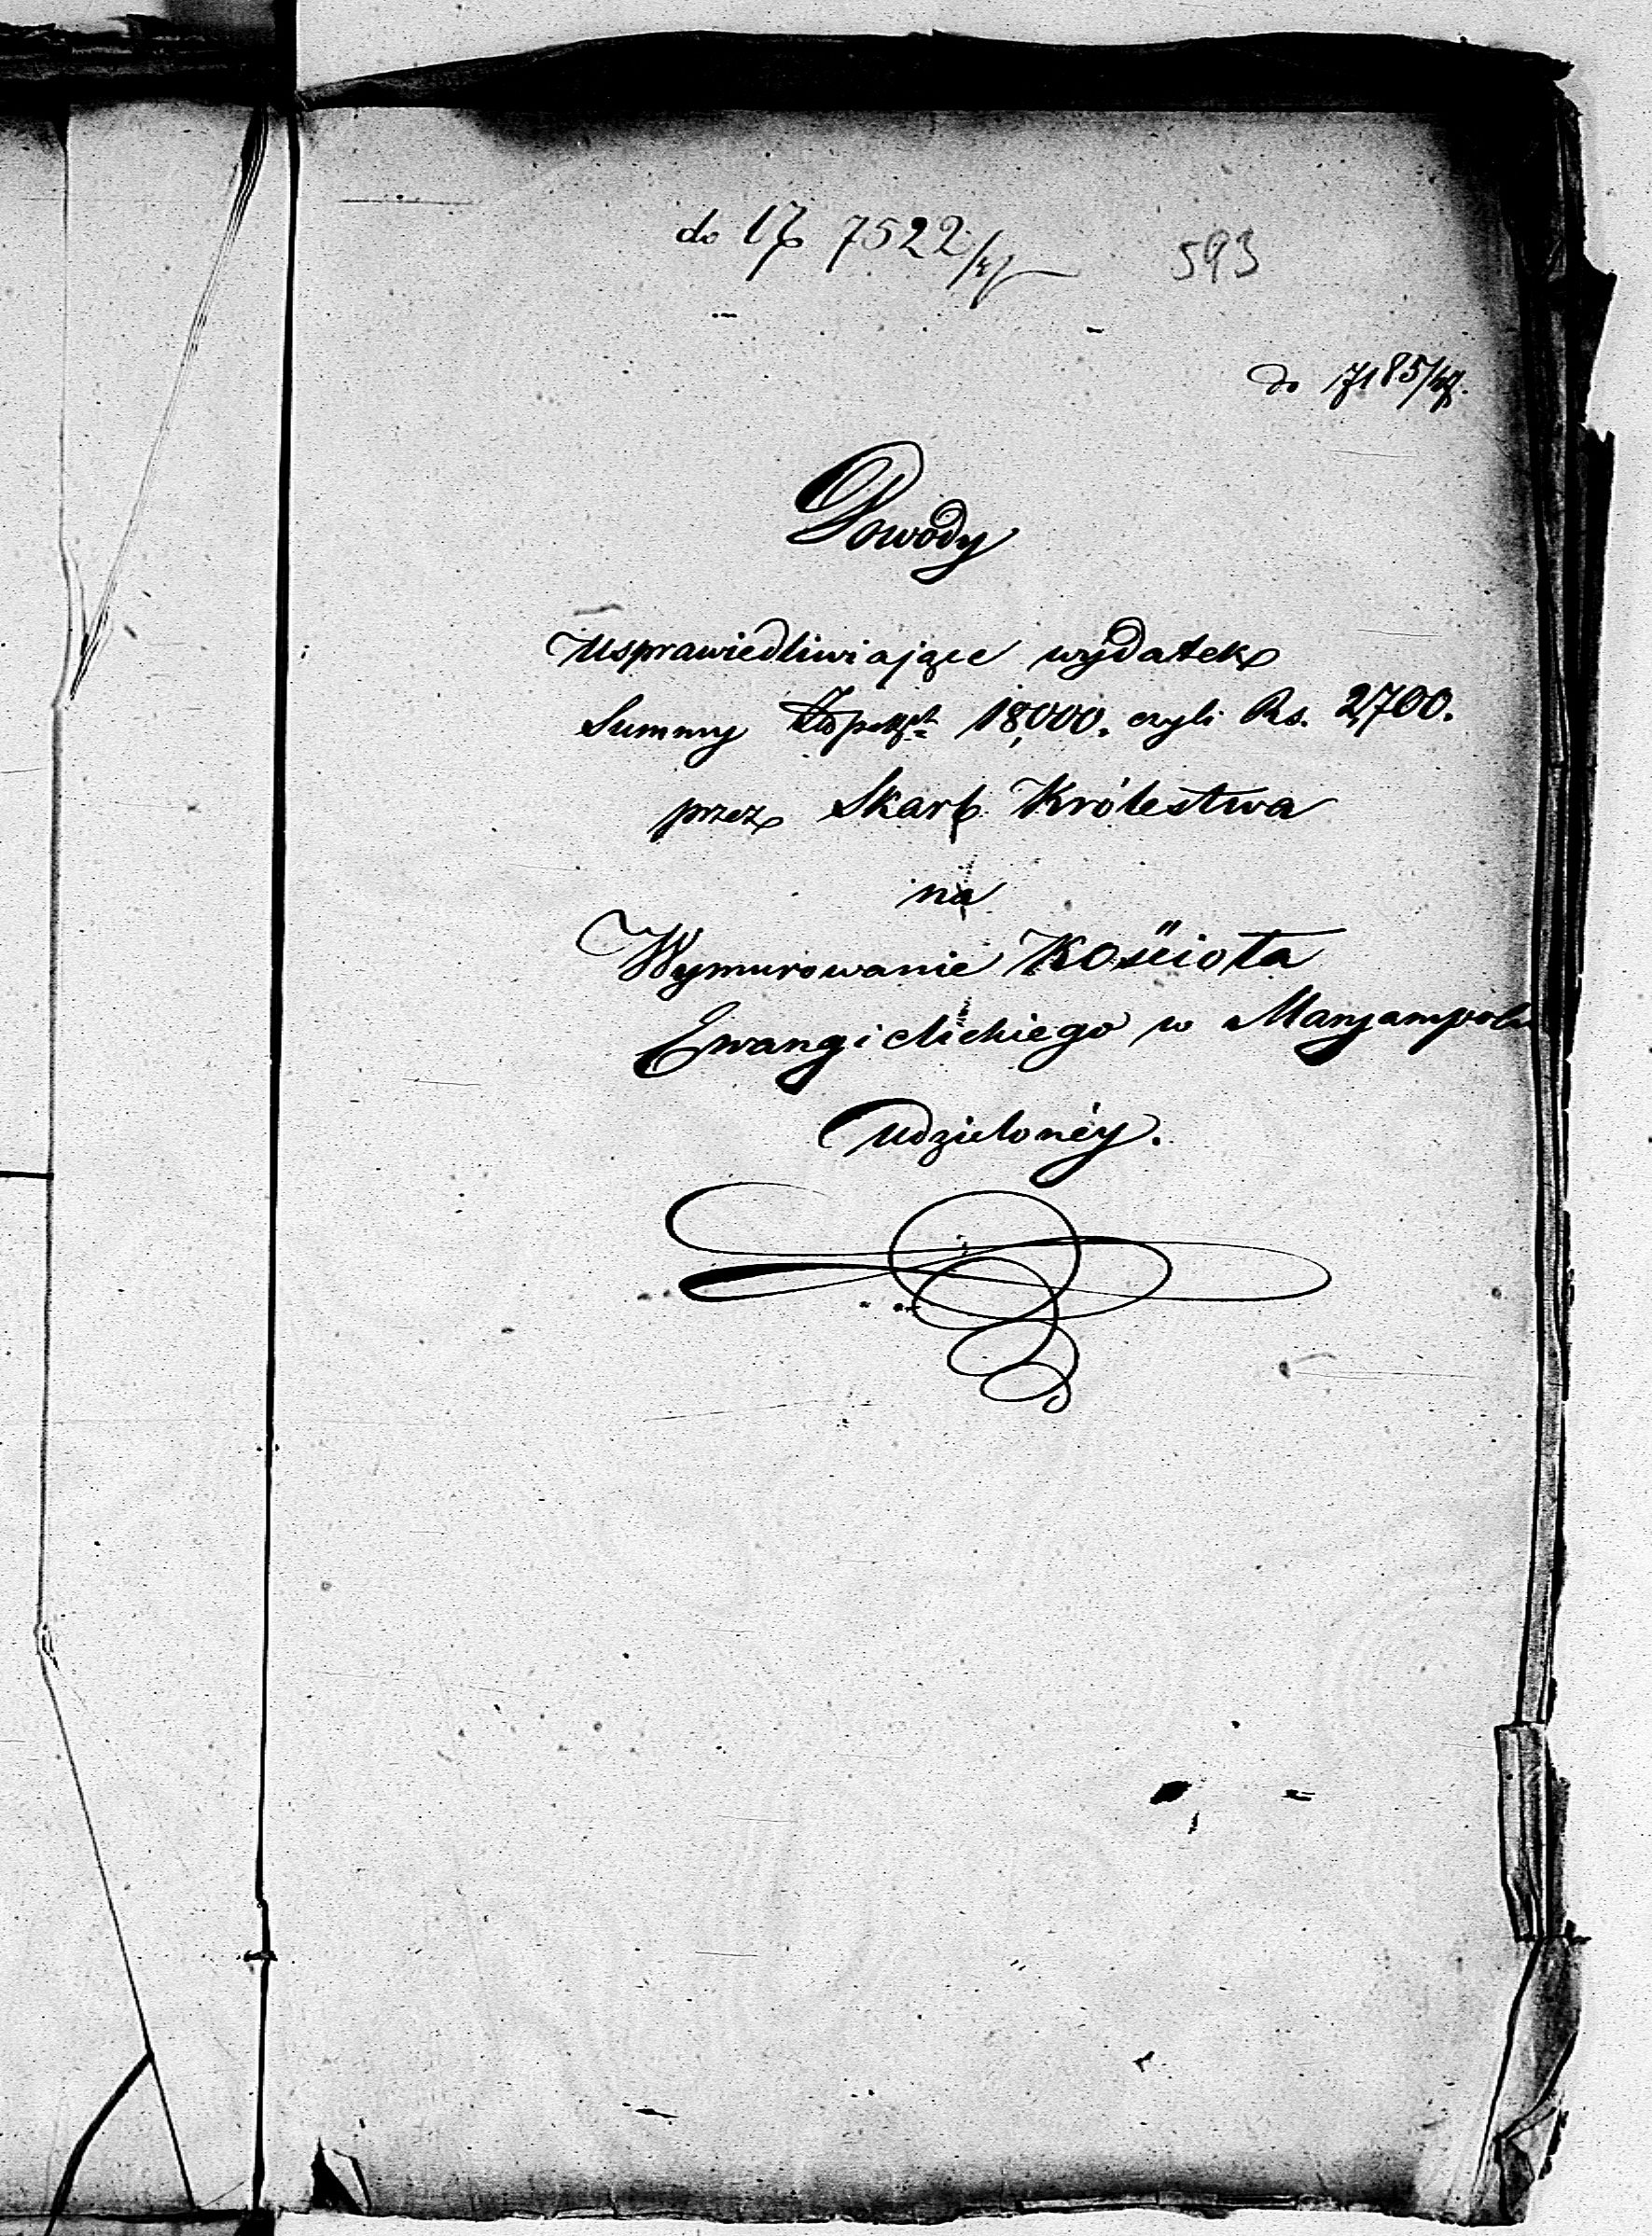 do 7522
593
do 7185/47.
Dowody
usprawiedliwiające wydatek
Summy 18,000. czyli Rs. 2,700.
przez Skarb Królestwa
na
Wymurowanie Kościoła
Ewangielickiego w Maryampolu
udzielonéy.